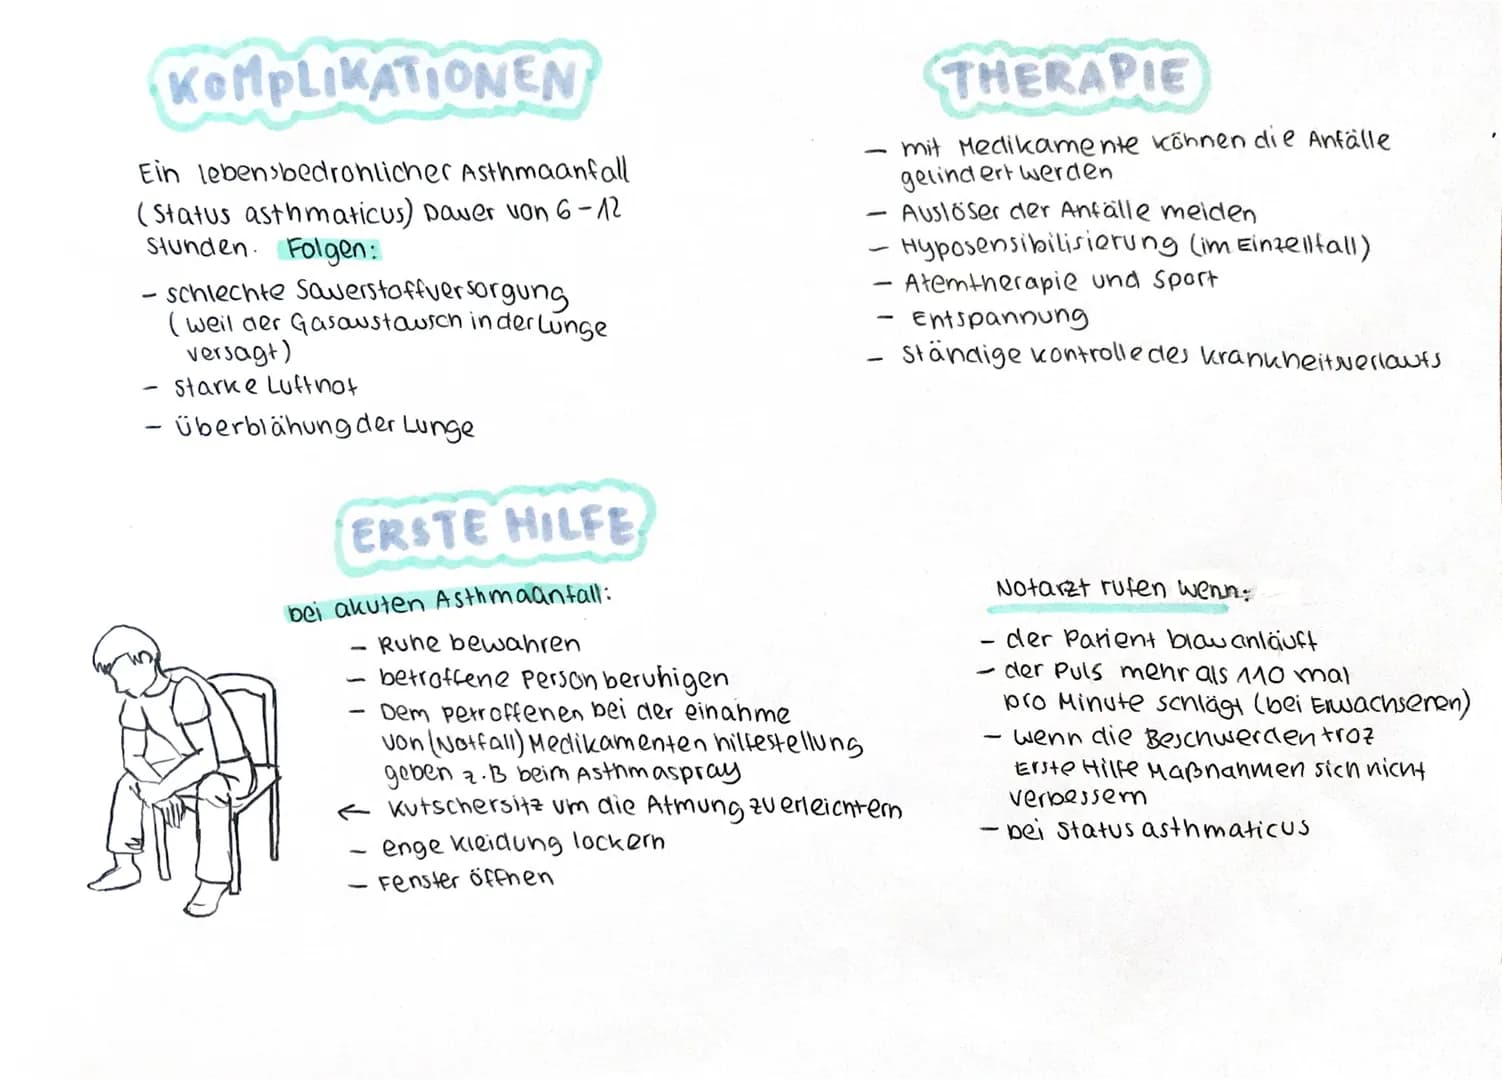 KOMPLIKATIONEN
Ein lebensbedrohlicher Asthmaanfall
(Status asthmaticus) Dauer von 6-12
Stunden. Folgen:
- schlechte Sauerstoffversorgung
(weil der Gasaustausch in der Lunge
versagt)
- starke Luftnot
- Überblähung der Lunge
THERAPIE
- mit Medikamente können die Anfälle
gelindert werden
- Auslöser der Anfälle meiden
- Hyposensibilisierung (im Einzellfall)
- Atemtherapie und Sport
- Entspannung
- Ständige kontrolle des krankheitsverlaufs
ERSTE HILFE
bei akuten Asthmaanfall:
- Ruhe bewahren
- betroffene Person beruhigen
- Dem petroffenen bei der einahme
von (Notfall) Medikamenten hilfestellung
geben z.B beim Asthmaspray
← Kutschersitz um die Atmung zu erleichtern
- enge kleidung lockern
- Fenster öffnen
Notarzt rufen wenn:
- der Parient blau anläuft
- der Puls mehr als 110 mal
pro Minute schlägt (bei Erwachseren)
- wenn die Beschwerden troz
Erste Hilfe Maßnahmen sich nicht
verbessern
- bei Status asthmaticus